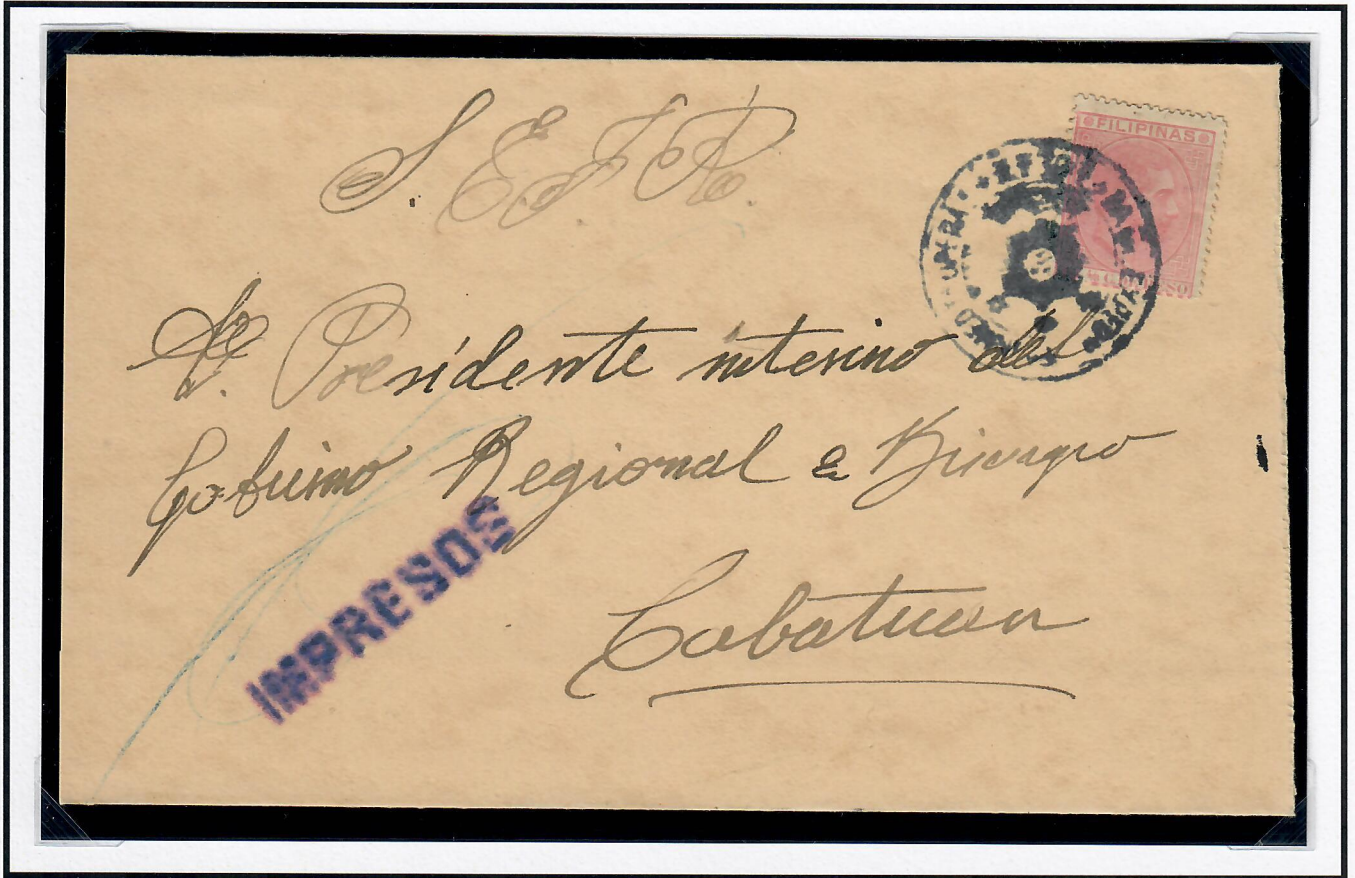 S. E. J. R.
FILIPINAS
Sr. Presidente interino del
Gobierno Regional
IMPRESOS
Cabatuan